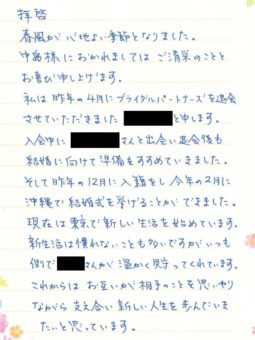 拝啓
春風が心地よい季節となりました。
中島様におかれましてはご清栄のことと
お喜び申し上げます。
私は昨年の4月にブライダルパートナーズを退会
させていただきました と申します。
入会中に さんと出会い退会後も
結婚に向けて準備をすすめていきました。
そして昨年の12月に入籍をし今年の2月に
沖縄で結婚式を挙げることができました。
現在は東京で新しい生活を始めています。
新生活は慣れないことも多いですがいつも
側で さんが温かく ってくれています。
これからはお互いが相手のことを思いやり
ながら支え合い新しい人生を歩んでいき
たいと思っています。